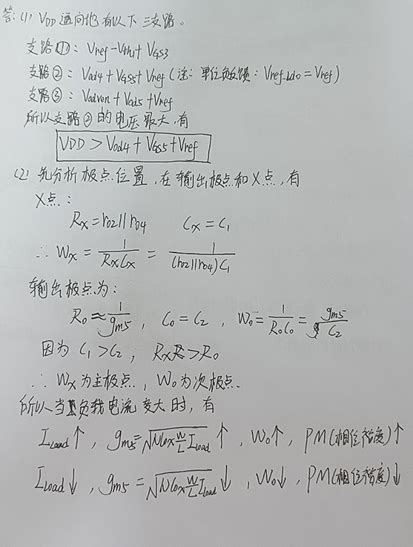 答: (1) VDD 通向地有以下三支路。
支路①: Vref - Vth1 + VGS3
支路②: Vod4 + VGS5 + Vref (注: 单位负反馈: Vref_ldo = Vref)
支路③: Vod + Vod5 + Vref
所以支路②的电压最大,有
VDD > Vod4 + VGS5 + Vref
(2) 先分析极点位置,在输出极点和X点,有
X点:
Rx = ro2 || ro4  Cx = C1
∴ Wx = 1/(RxCx) = 1/((ro2||ro4)C1)
输出极点为:
Ro ≈ 1/gm5 , Co = C2 , Wo = 1/(RoCo) = gm5/C2
因为 C1 > C2 , Rx > Ro
∴ Wx为主极点, Wo为次极点.
所以当负载电流变大时,有
ILoad ↑ , gm5 = √(uCox W/L ILoad) ↑ , Wo↑ , PM(相位裕度)↑
ILoad ↓ , gm5 = √(uCox W/L ILoad) ↓ , Wo↓ , PM(相位裕度)↓